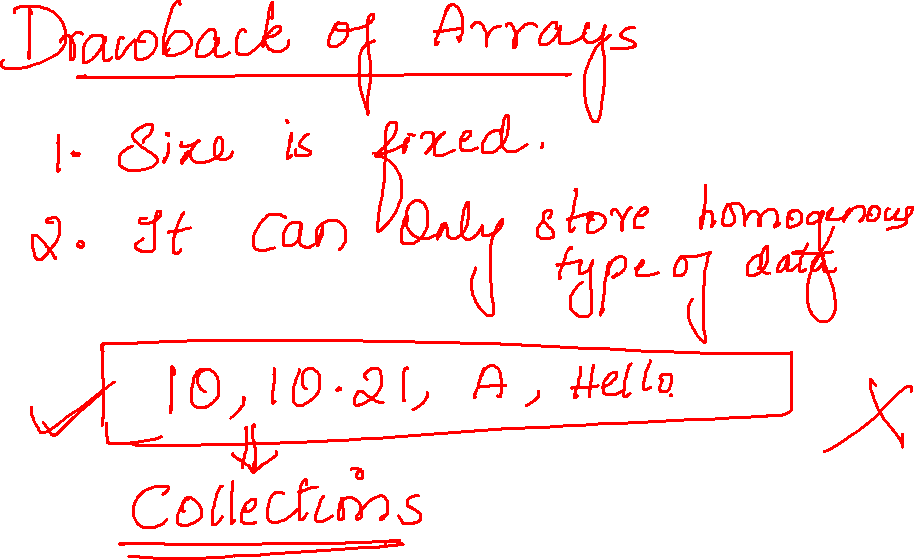 Drawback of Arrays
1. Size is fixed.
2. It can Only store homogenous
type of data
10, 10.21, A, Hello
Collections